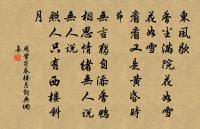 東風歇
香塵滿院花如雪
花如雪
看看又是黃昏時
節
無言獨自添香鴨
相思情緒無人說
無人說
照人只有西樓斜
月
周紫芝秦樓月詞典網
集